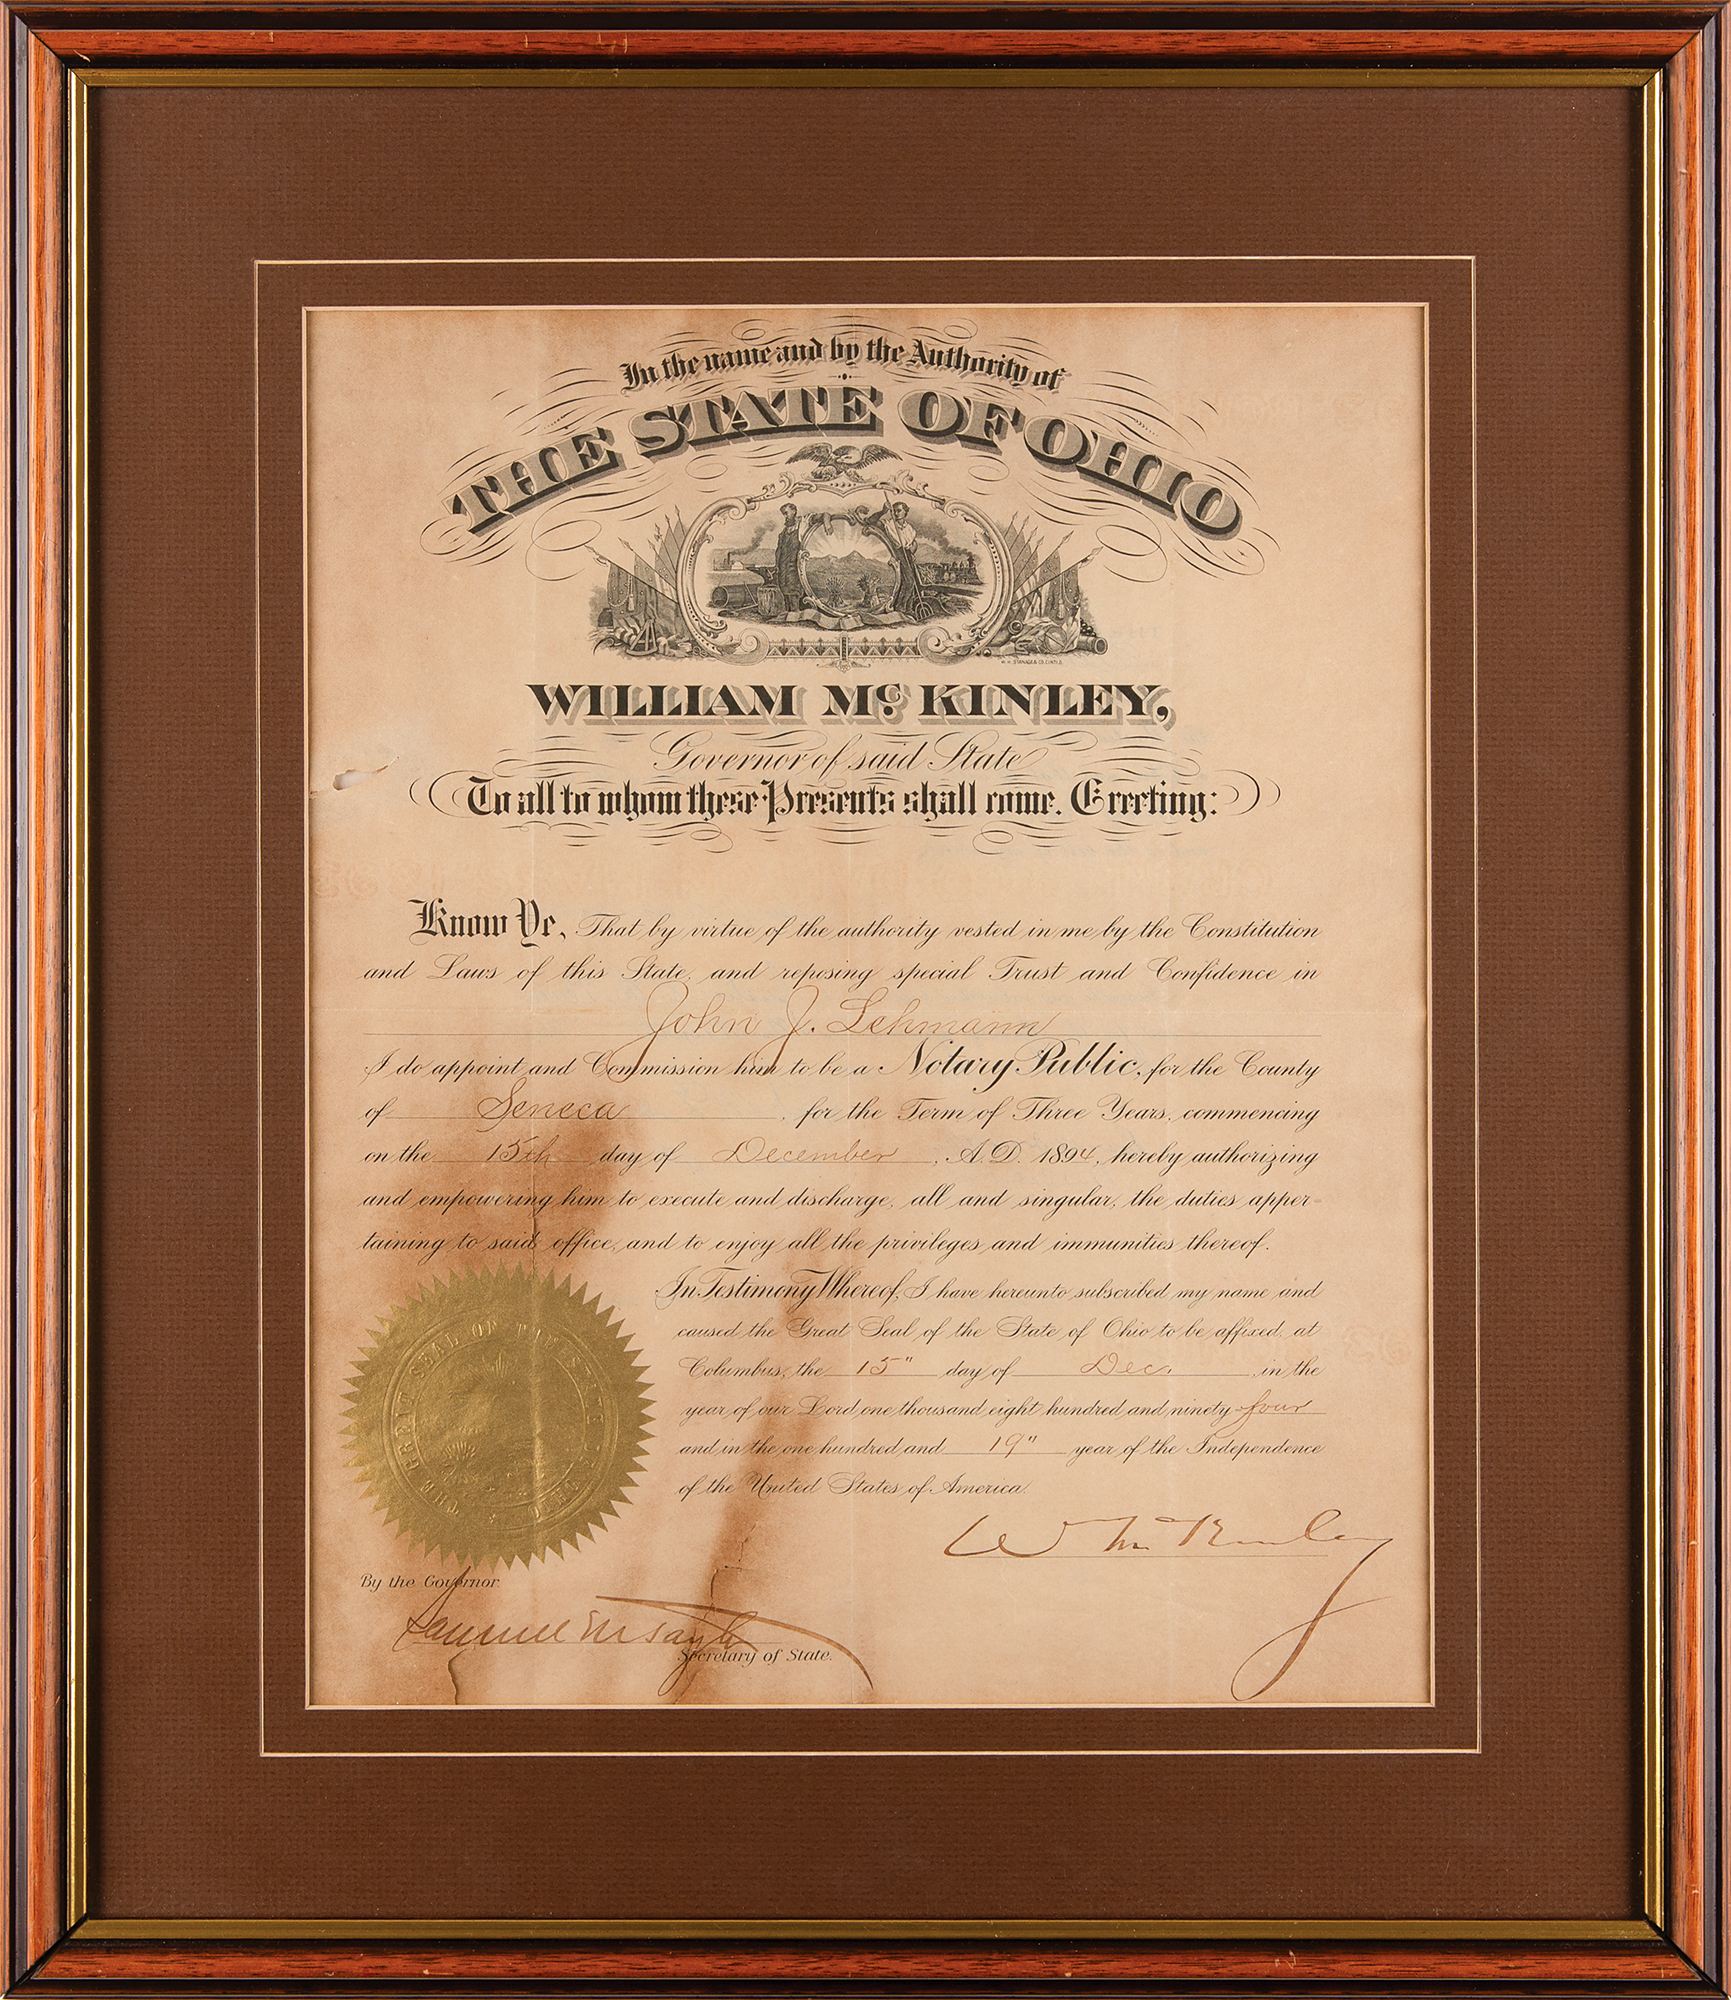 In the name and by the Authority of
THE STATE OF OHIO
WILLIAM McKINLEY,
Governor of said State
To all to whom these Presents shall come, Greeting:
Know Ye, That by virtue of the authority vested in me by the Constitution
and Laws of this State, and reposing special Trust and Confidence in
John J. Lehmann
I do appoint and Commission him to be a Notary Public, for the County
of Seneca, for the Term of Three Years, commencing
on the 15th day of December, A.D. 1894, hereby authorizing
and empowering him to execute and discharge, all and singular, the duties apper-
taining to said office, and to enjoy all the privileges and immunities thereof.
In Testimony Whereof, I have hereunto subscribed my name and
caused the Great Seal of the State of Ohio to be affixed, at
Columbus, the 15" day of Dec. in the
year of our Lord one thousand eight hundred and ninety-four
and in the one hundred and 19" year of the Independence
of the United States of America.
W McKinley
THE GREAT SEAL OF THE STATE OF OHIO
By the Governor:
Samuel M Taylor
Secretary of State.